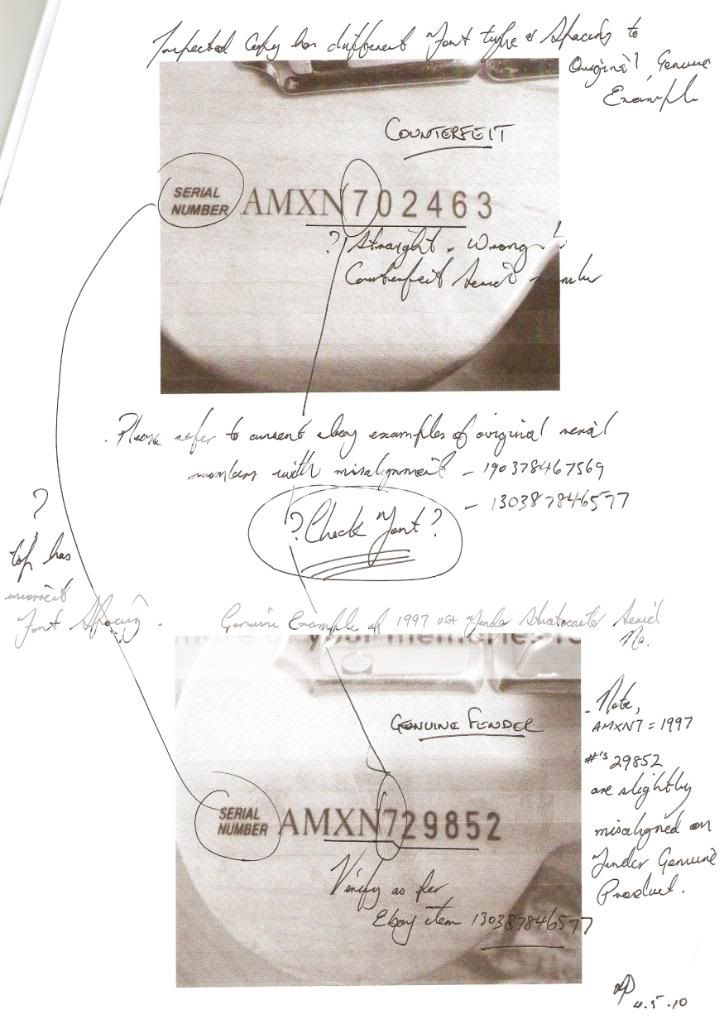 Inspected Copy has different Font type & Spacing to
Original, Genuine
Example
COUNTERFEIT
SERIAL
NUMBER
AMXN702463
? Straight - Wrong
Counterfeit Serial number
. Please refer to current ebay examples of original serial
numbers with misalignment - 190378467569
- 130387846577
? Check Font ?
?
top has
incorrect
Font Spacing.
Genuine Example of 1997 USA Fender Stratocaster Serial
No.
your memories
GENUINE FENDER
SERIAL
NUMBER
AMXN729852
Verify as per
Ebay item 130387846577
- Note,
AMXN7 = 1997
#'s 29852
are slightly
misaligned on
Fender Genuine
Product.
4.5.10